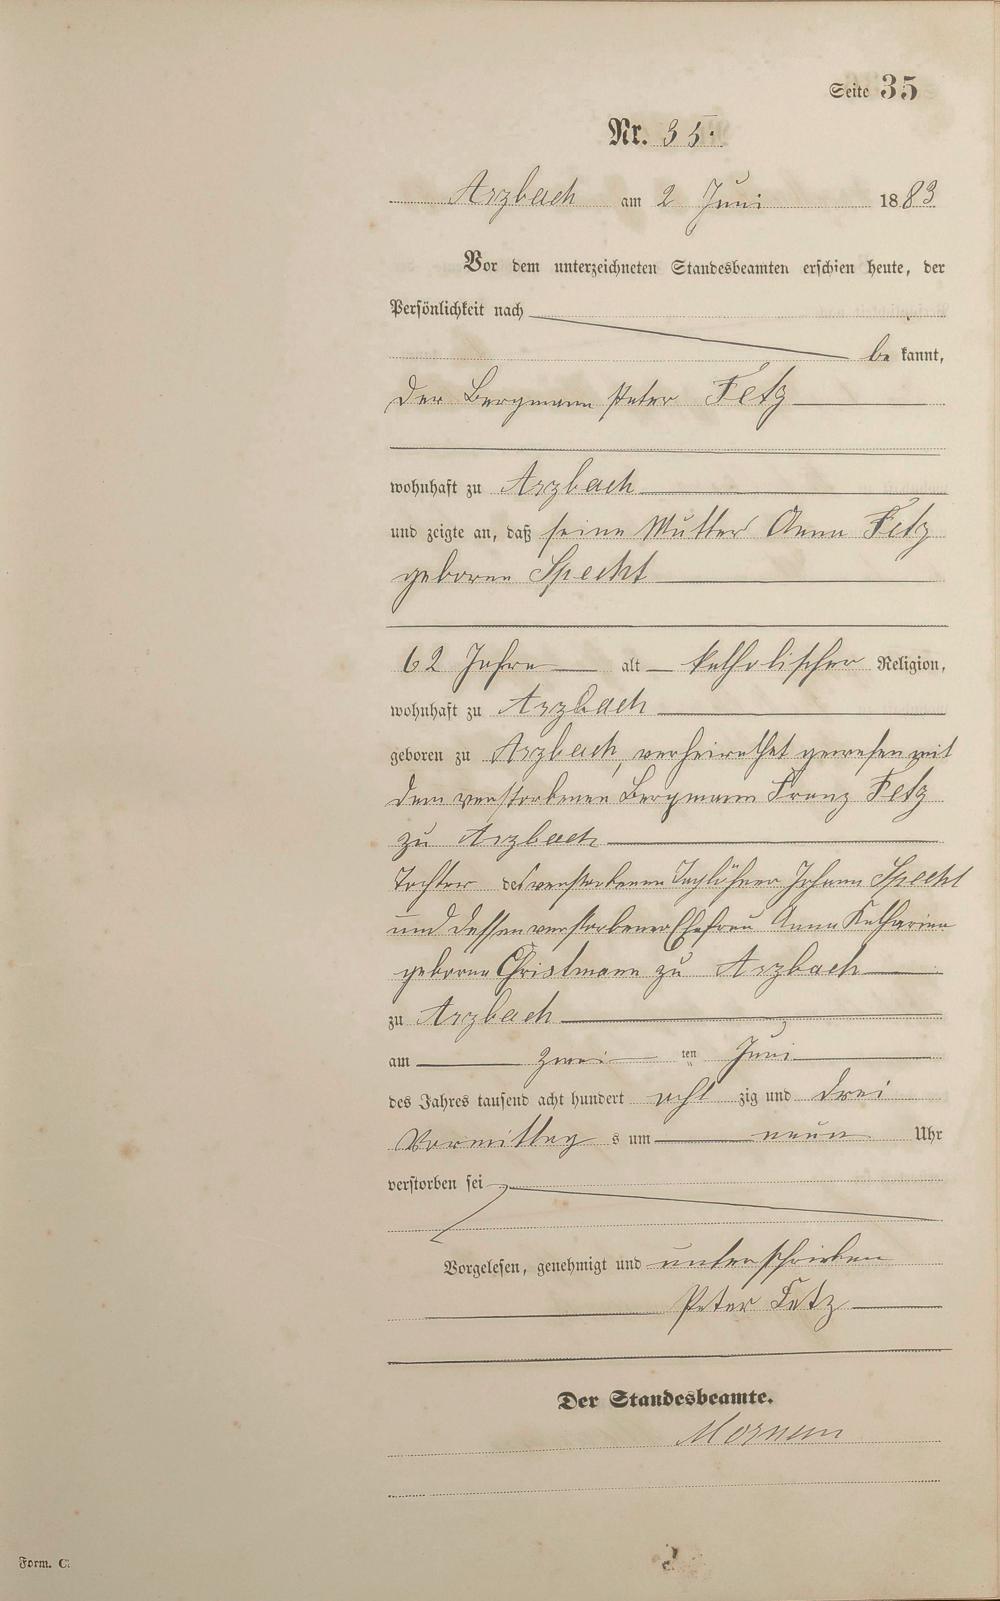 Seite 35
Nr. 35.
Arzbach am 2 Juni 1883
Vor dem unterzeichneten Standesbeamten erschien heute, der
Persönlichkeit nach
be kannt,
der Bergmann Peter Fetz
wohnhaft zu Arzbach
und zeigte an, daß seine Mutter Anna Fetz
geborne Specht
62 Jahre alt katholischer Religion,
wohnhaft zu Arzbach
geboren zu Arzbach, verheirathet gewesen mit
dem verstorbenen Bergmann Franz Fetz
zu Arzbach
Tochter des verstorbenen Taglöhner Johann Specht
und dessen verstorbener Ehefrau Anna Katharina
geborne Christmann zu Arzbach
zu Arzbach
am zwei ten Juni
des Jahres tausend acht hundert acht zig und drei
Vormittag s um neun Uhr
verstorben sei
Vorgelesen, genehmigt und unterschrieben
Peter Fetz
Der Standesbeamte.
Form. C.